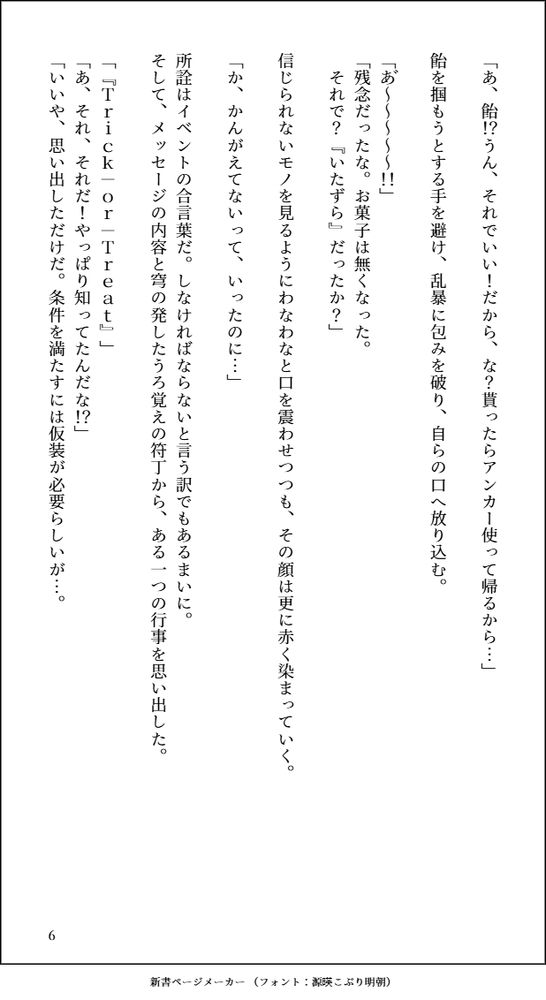 「あ、飴!?うん、それでいい！だから、な？貰ったらアンカー使って帰るから…」
飴を掴もうとする手を避け、乱暴に包みを破り、自らの口へ放り込む。
「あ゛～～～～～!!」
「残念だったな。お菓子は無くなった。
それで？『いたずら』だったか？」
信じられないモノを見るようにわなわなと口を震わせつつも、その顔は更に赤く染まっていく。
「か、かんがえてないって、いったのに…」
所詮はイベントの合言葉だ。しなければならないと言う訳でもあるまいに。
そして、メッセージの内容と穹の発したうろ覚えの符丁から、ある一つの行事を思い出した。
「『Ｔｒｉｃｋ―ｏｒ―Ｔｒｅａｔ』」
「あ、それ、それだ！やっぱり知ってたんだな!?」
「いいや、思い出しただけだ。条件を満たすには仮装が必要らしいが…。
6
新書ページメーカー（フォント：源暎こぶり明朝）